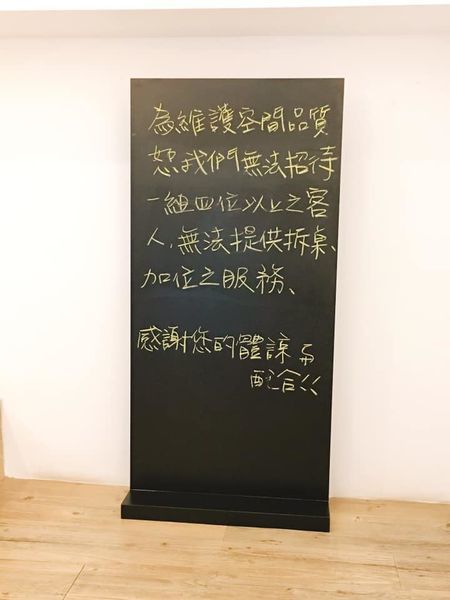 為維護空間品質
恕我們無法招待
一組四位以上之客
人,無法提供拆桌、
加位之服務、
感謝您的體諒與
配合!!